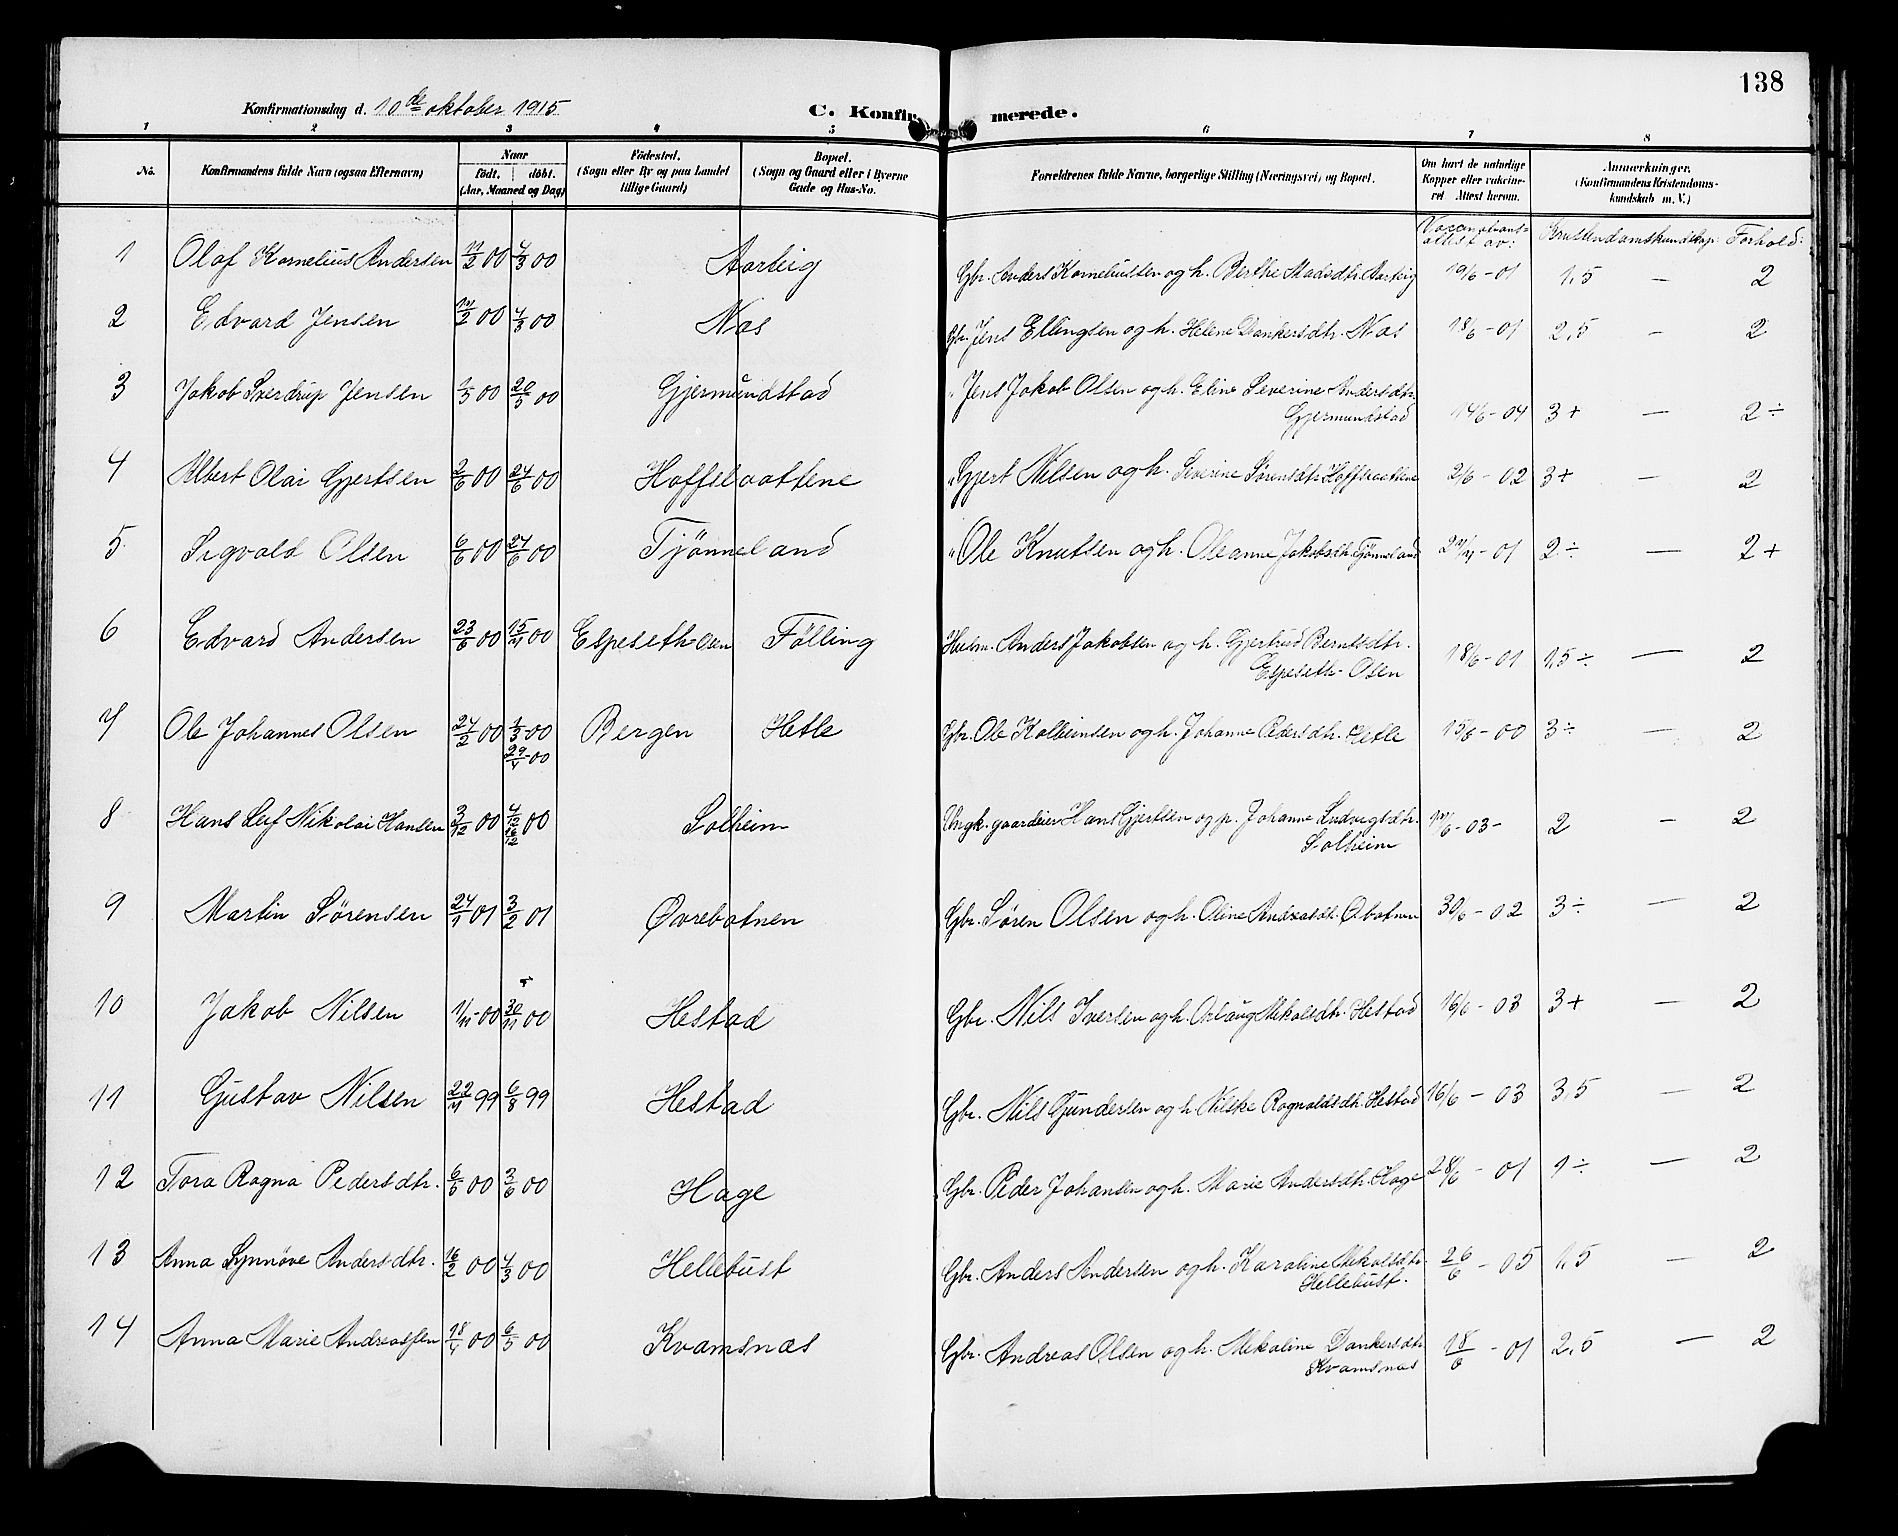 138
Konfirmationsdag d. 10de oktober 1915
C. Konfirmerede.
1 2 3 4 5 6 7 8
No. Konfirmandens fulde Navn (ogsaa Efternavn) Naar födt. döbt. (Aar, Maaned og Dag) Födested. (Sogn eller By og paa Landet tillige Gaard) Bopæl. (Sogn og Gaard eller i Byerne Gade og Hus-No. Forældrenes fulde Navne, borgerlige Stilling (Næringsvei) og Bopæl. Om havt de naturlige Kopper eller vakcineret Attest herom. Anmærkninger. (Konfirmandens Kristendomskundskab m. V.)
attest av: Kristendomskundskap: Forhold:
1 Olaf Kornelius Andersen 11/2 00 4/3 00 Aarbig Gbr. Anders Korneliussen og h. Berthe Madsdtr. Aarbig 19/6-01 1,5 — 2
2 Edvard Jensen 4/3 00 Næs Gbr. Jens Ellingsen og h. Helene Dankertsdtr. Næs 18/6-01 2,5 — 2
3 Jakob Sverdrup Jensen 20/5 00 Gjermundstad " Jens Jakob Olsen og h. Eline Severine Andersdtr.
Gjermundstad 14/6-04 3+ — 2÷
4 Albert Olai Gjertsen 2/6 00 24/6 00 Hoffslaattene " Gjert Nilsen og h. Severine Sørensdtr. Hoffslaattene 2/6-02 3+ — 2
5 Sigvald Olsen 6/6 00 24/6 00 Tjønneland " Ole Knutsen og h. Oleanne Jakobsdtr. Tjønneland 2÷ — 2+
6 Edvard Andersen 23/6 00 15/7 00 Espeseth-Osen Følling Husm. Anders Jakobsen og h. Gjertrud Berntsdtr.
Espeseth-Osen 18/6-01 1,5÷ — 2
7 Ole Johannes Olsen 24/2 00 00 Bergen Hetle Gbr. Ole Kolbeinsen og h. Johanne Pedersdtr. Hetle 15/6-00 3÷ — 2
29/4-00
8 Hans Leif Nikolai Hansen 3/12 00 4/12 00 Solheim Ungk. gaardeier Hans Gjertsen og p. Johanne Ludvigsdtr.
16/12 Solheim 2 — 2
9 Martin Sørensen 24/1 01 3/2 01 Øvrebotnen Gbr. Søren Olsen og h. Oline Andreasdtr. Øbotnen 30/6-02 3÷ — 2
10 Jakob Nilsen 1/11-00 30/11 00 Hestad Gbr. Nils Iversen og h. Mekalsdtr. Hestad 16/6-03 3+ — 2
11 Gustav Nilsen 22/7 99 6/8 99 Hestad Gbr. Nils Gundersen og h. Nilske Ragnaldsdtr. Hestad 16/6-03 3,5 — 2
12 Tora Ragna Pedersdtr. 6/5 00 3/6 00 Hage Gbr. Peder Johansen og h. Marie Andersdtr. Hage 28/6-01 1÷ — 2
13 Anna Synnøve Andersdtr. 16/2 00 4/3 00 Hellebust Gbr. Anders Andersen og h. Karoline Mekalsdtr.
Hellebust. 26/6-05 1,5 — 2
14 Anna Marie Andreassen 18/4 00 6/5 00 Kvamsnæs Gbr. Andreas Olsen og h. Mekaline Dankertsdtr.
Kvamsnæs 18/6-01 2,5 — 2